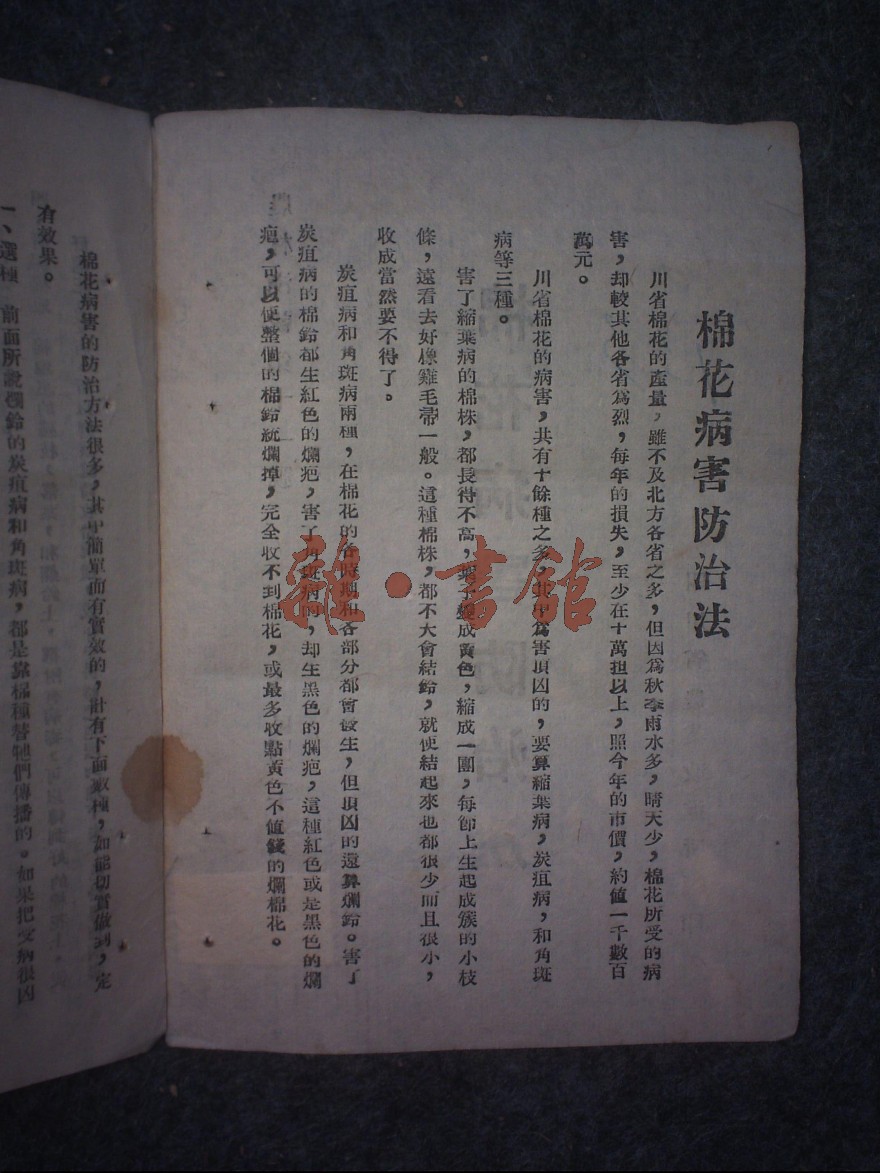 棉花病害防治法
川省棉花的產量，雖不及北方各省之多，但因爲秋季雨水多，晴天少，棉花所受的病
害，却較其他各省爲烈，每年的損失，至少在十萬担以上，照今年的市價，約值一千數百
萬元。
川省棉花的病害，共有十餘種之多，其中爲害頂凶的，要算縮葉病，炭疽病，和角斑
病等三種。
害了縮葉病的棉株，都長得不高，葉子變成黃色，縮成一團，每節上生起成簇的小枝
條，遠看去好像雞毛帚一般。這種棉株，都不大會結鈴，就使結起來也都很少而且很小，
收成當然要不得了。
炭疽病和角斑病兩種，在棉花的各時期和各部分都會發生，但頂凶的還算爛鈴。害了
炭疽病的棉鈴都生紅色的爛疤，害了角斑病的，却生黑色的爛疤，這種紅色或是黑色的爛
疤，可以使整個的棉鈴統爛掉，完全收不到棉花，或最多收點黃色不值錢的爛棉花。
棉花病害的防治方法很多，其中簡單而有實效的，計有下面數種，如能切實做到，定
有效果。
一、選種 前面所說爛鈴的炭疽病和角斑病，都是靠棉種替牠們傳播的。如果把受病很凶
雜·書館